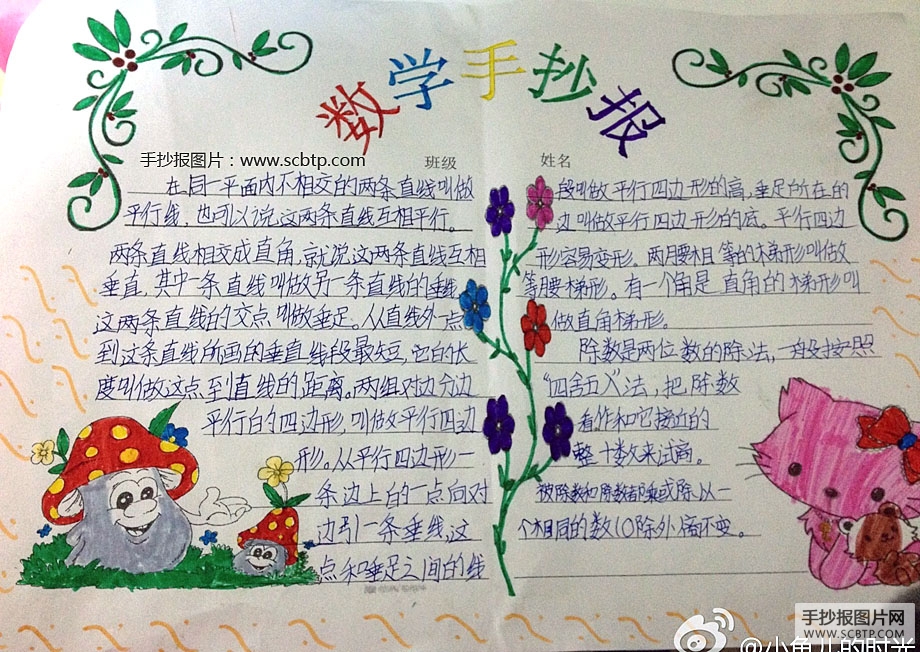 数学手抄报
手抄报图片：www.scbtp.com
班级
姓名
在同一平面内不相交的两条直线叫做
平行线，也可以说这两条直线互相平行。
两条直线相交成直角，就说这两条直线互相
垂直，其中一条直线叫做另一条直线的垂线，
这两条直线的交点叫做垂足。从直线外一点
到这条直线所画的垂直线段最短，它的长
度叫做这点到直线的距离。两组对边分边
平行的四边形，叫做平行四边
形。从平行四边形一
条边上的一点向对
边引一条垂线，这
点和垂足之间的线
段叫做平行四边形的高，垂足所在的
边叫做平行四边形的底。平行四边
形容易变形。两月要相等的梯形叫做
等月要梯形。有一个角是直角的梯形叫
做直角梯形。
除数是两位数的除法，一般按照
“四舍五入”法，把除数
看作和它接近的
整十数来试商。
被除数和除数都乘或除以一
个相同的数（0除外）商不变。
手抄报图片网
WWW.SCBTP.COM
@小鱼儿的时光